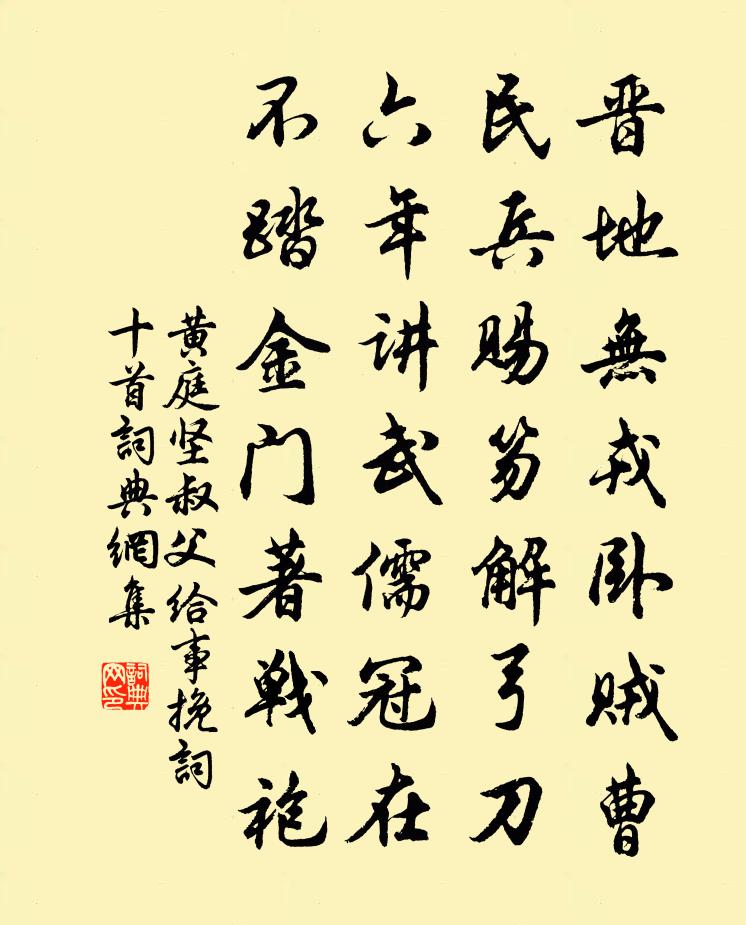 晋地無戎卧贼曹
民兵賜笏解弓刀
六年讲武儒冠在
不踏金门著戦袍
黄庭坚叔父给事挽詞
十首詞典網集
詞典
网印